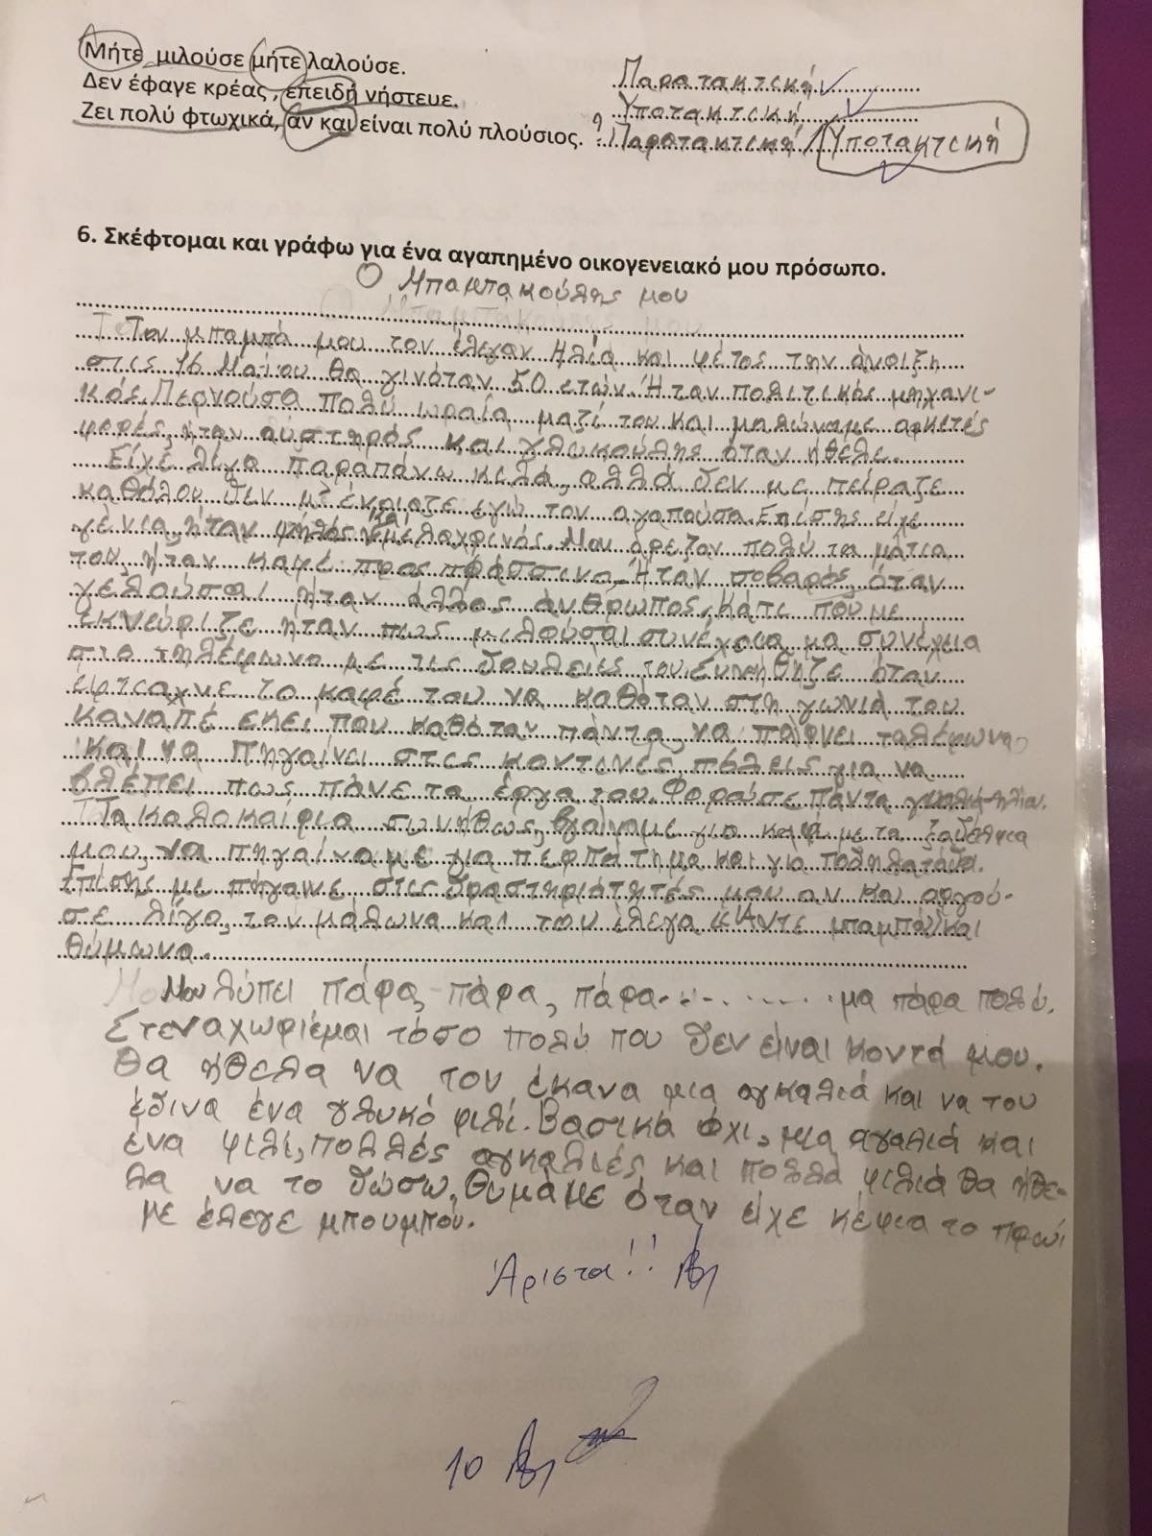 Μήτε μιλούσε μήτε λαλούσε.
Παρατακτική
Δεν έφαγε κρέας , επειδή νήστευε.
Υποτακτική
Ζει πολύ φτωχικά, αν και είναι πολύ πλούσιος.
? Παρατακτική / Υποτακτική
6. Σκέφτομαι και γράφω για ένα αγαπημένο οικογενειακό μου πρόσωπο.
Ο Μπαμπακούλης μου
Τον μπαμπά μου τον έλεγαν Ηλία και φέτος την άνοιξη
στις 16 Μαΐου θα γινόταν 50 ετών. Ήταν πολιτικός μηχανι-
κός. Περνούσα πολύ ωραία μαζί του και μαλώναμε αρκετές
φορές, ήταν αυστηρός και γλυκούλης όταν ήθελε.
Είχε λίγα παραπάνω κιλά, αλλά δεν με πείραζε
καθόλου δεν μ' ένοιαζε εγώ τον αγαπούσα. Επίσης είχε
γένια, ήταν ψηλός και μελαχρινός. Μου άρεζαν πολύ τα μάτια
του, ήταν καφέ προς πράσσινο. Ήταν σοβαρός, όταν
γελούσαι ήταν άλλος άνθρωπος. Κάτι που με
εκνεύριζε ήταν πως μιλούσαι συνέχεια μα συνέχεια
στο τηλέφωνο με τις δουλειές του. Συνήθηζε όταν
έφτιαχνε το καφέ του να καθόταν στη γωνιά του
καναπέ εκεί που καθόταν πάντα, να παίρνει τηλέφωνα
και να πηγαίνει στις κοντινές πόλεις για να
βλέπει πως πάνε τα έργα του. Φορούσε πάντα γυαλιά ηλίου.
Τα καλοκαίρια συνήθως, βγαίναμε για καφέ με τα ξαδέλφια
μου, να πηγαίναμε για περπάτημα και για ποδηλατάδα.
Επίσης με πήγαινε στις δραστηριότητές μου αν και αργού-
σε λίγο, τον μάλωνα και του έλεγα «Άντε μπαμπά» και
θύμωνα.
Μου λύπει πάρα, πάρα, πάρα........... μα πάρα πολύ.
Στεναχωριέμαι τόσο πολύ που δεν είναι κοντά μου.
Θα ήθελα να τον έκανα μια αγκαλιά και να του
έδινα ένα γλυκό φιλί. Βασικά όχι, μια αγαλιά και
ένα φιλί, πολλές αγκαλιές και πολλά φιλιά θα ήθε-
λα να το δώσω. Θυμάμε όταν είχε κέφια το πρωί
με έλεγε μπουμπού.
Άριστα!!
10